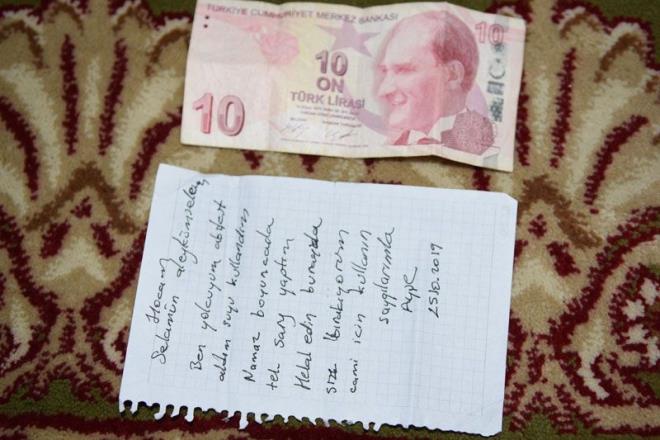 TÜRKİYE CUMHURİYET MERKEZ BANKASI
10
10
ON
TÜRK LİRASI
10
Hocam
Selamün aleykümselam
Ben yolcuyum abdest
aldım suyu kullandım
Namaz boyuncada
tek şarj yaptım
Helal edin burayıda
size bırakıyorum
cami icin kullanın
saygılarımla
Ayşe
25.10.2019